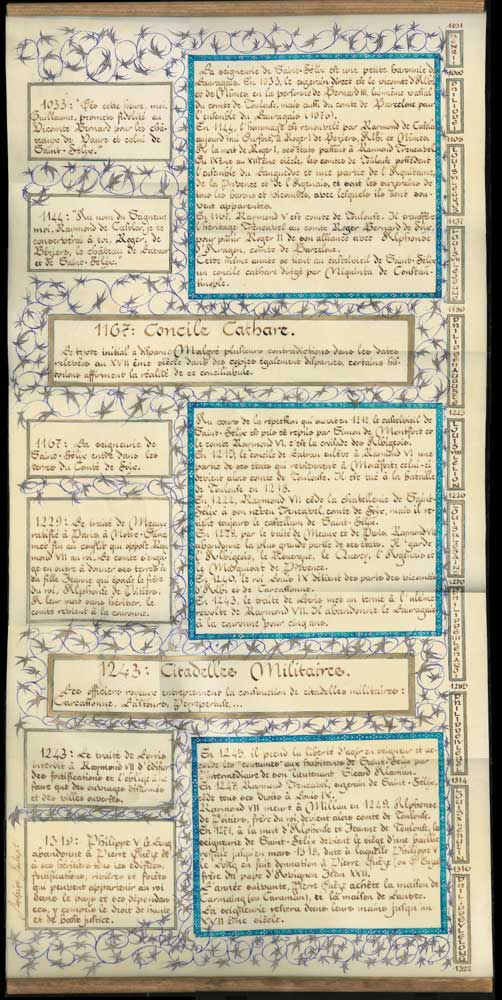 1033 : "Dès cette heure, moi,
Guillaume, promets fidélité au
Vicomte Bernard pour les châ-
teaux de Vaure et celui de
Saint-Felix.
1144 : "Au nom du Seigneur
moi, Raymond de Cathlar, je te
conserverai à toi, Roger, de
Béziers, le château de Lavaur
et de Saint-Felix.
La seigneurie de Saint-Felix est une petite baronnie du
Lauragais. En 1033, le suzerain direct est le vicomte d'Albi
et de Nîmes, en la personne de Bernard III, lui-même vassal
du comte de Toulouse, mais aussi du comte de Barcelone pour
l'ensemble du Lauragais (1070).
En 1144, l'hommage est renouvelé par Raymond de Cathla
aujourd'hui à Roger de Béziers, Albi et Nîmes.
A la mort de Roger, ses états passent à Raymond Trencavel
Du IXème au XIIIème siècle, les comtes de Toulouse possèdent
l'ensemble du Languedoc et une partie de l'Aquitaine,
de la Provence et de l'Agenais, et sont les suzerains de
tous les barons et vicomtes, avec lesquels ils sont sou-
vent apparentés.
En 1167, Raymond V est comte de Toulouse. Il transfère
l'héritage Trencavel au comte Roger Bernard de Foix,
pour punir Roger II de son alliance avec Alphonse
d'Aragon, comte de Barcelone.
Cette même année se tient au castelviel de Saint-Felix
un concile cathare dirigé par Niquinta de Constan-
tinople.
1167 : Concile Cathare.
Le texte initial a disparu. Malgré plusieurs contradictions dans les dates
relevées au XVII ème siècle dans des copies également disparues, certains his-
toriens affirment la réalité de ce conciliabule.
1167 : La seigneurie de
Saint-Felix entre dans les
terres du Comté de Foix.
1229 : Le traité de Meaux
ratifié à Paris, à Notre-Dame
met fin au conflit qui oppose Raymond
VII au roi. Le comte s'enga-
ge en outre à donner ses terres à
sa fille Jeanne qui épouse le frère
du roi, Alphonse de Poitiers.
A leur mort sans héritier, le
comté revient à la couronne.
Au cours de la répression qui suivit en 1211, le castelviel de
Saint-Felix est pris et repris par Simon de Montfort et
le comte Raymond VI, c'est la croisade des Albigeois.
En 1215, le concile de Latran enlève à Raymond VI une
partie de ses états qui reviennent à Montfort ; celui-ci
devient alors comte de Toulouse. Il est tué à la bataille
de Toulouse en 1218.
En 1222, Raymond VII cède la chatellenie de Saint-
Felix à son neveu Trencavel, comte de Foix, mais il re-
tient toujours le castellum de Saint-Felix.
En 1229, par le traité de Meaux et de Paris, Raymond VII
abandonne la plus grande partie de ses états. Il garde
l'Albigeois, le Rouergue, le Quercy, l'Agenais et
le Marquisat de Provence.
En 1240, le roi Louis IX détient des parts des vicomtés
d'Albi et de Carcassonne.
En 1243, le traité de Lorris met un terme à l'ultime
révolte de Raymond VII. Il abandonne le Lauragais
à la couronne pour cinq ans.
1243 : Citadelles Militaires.
Les officiers royaux entreprennent la construction de citadelles militaires :
Carcassonne, Lastours, Peyrepertuse,...
1243 : Le traité de Lorris
interdit à Raymond VII d'édifier
des fortifications et l'oblige à ne
faire que des ouvrages désarmés
et des villes ouvertes.
1319 : Philippe V le Long
abandonne à Pierre Duèze et
à ses héritiers les édifices,
fortifications, rivières et forêts
qui peuvent appartenir au roi
dans le pays et ses dépendan-
ces, y compris le droit de haute
et de basse justice.
En 1245, il prend la liberté d'agir en seigneur et ac-
corde les "coutumes" aux habitants de Saint-Felix par
l'intermédiaire de son lieutenant Sicard Alaman.
En 1247, Raymond Trencavel, suzerain de Saint-Felix,
cède tous ses droits à Louis IX.
Raymond VII meurt à Millau en 1249, Alphonse
de Poitiers, frère du roi, devient alors comte de Toulouse.
En 1271, à la mort d'Alphonse et Jeanne de Toulouse, la
seigneurie de Saint-Felix devient le siège d'une baillie
royale jusqu'en mars 1318, date à laquelle Philippe V
le Long en fait donation à Pierre Duèze
frère du pape d'Avignon Jean XXII.
L'année suivante, Pierre Duèze achète la maison de
Carmaing (ou Caraman), et la maison de Lautrec.
La seigneurie restera dans leurs mains jusqu'au
XVII ème siècle.
1031
HENRI I
1060
PHILIPPE I
1108
LOUIS VI LE GROS
1137
LOUIS VII LE JEUNE
1180
PHILIPPE II AUGUSTE
1223
LOUIS VIII LE LION
1226
1270
PHILIPPE III LE HARDI
1285
PHILIPPE IV LE BEL
1314
1316
PHILIPPE V LE LONG
1322